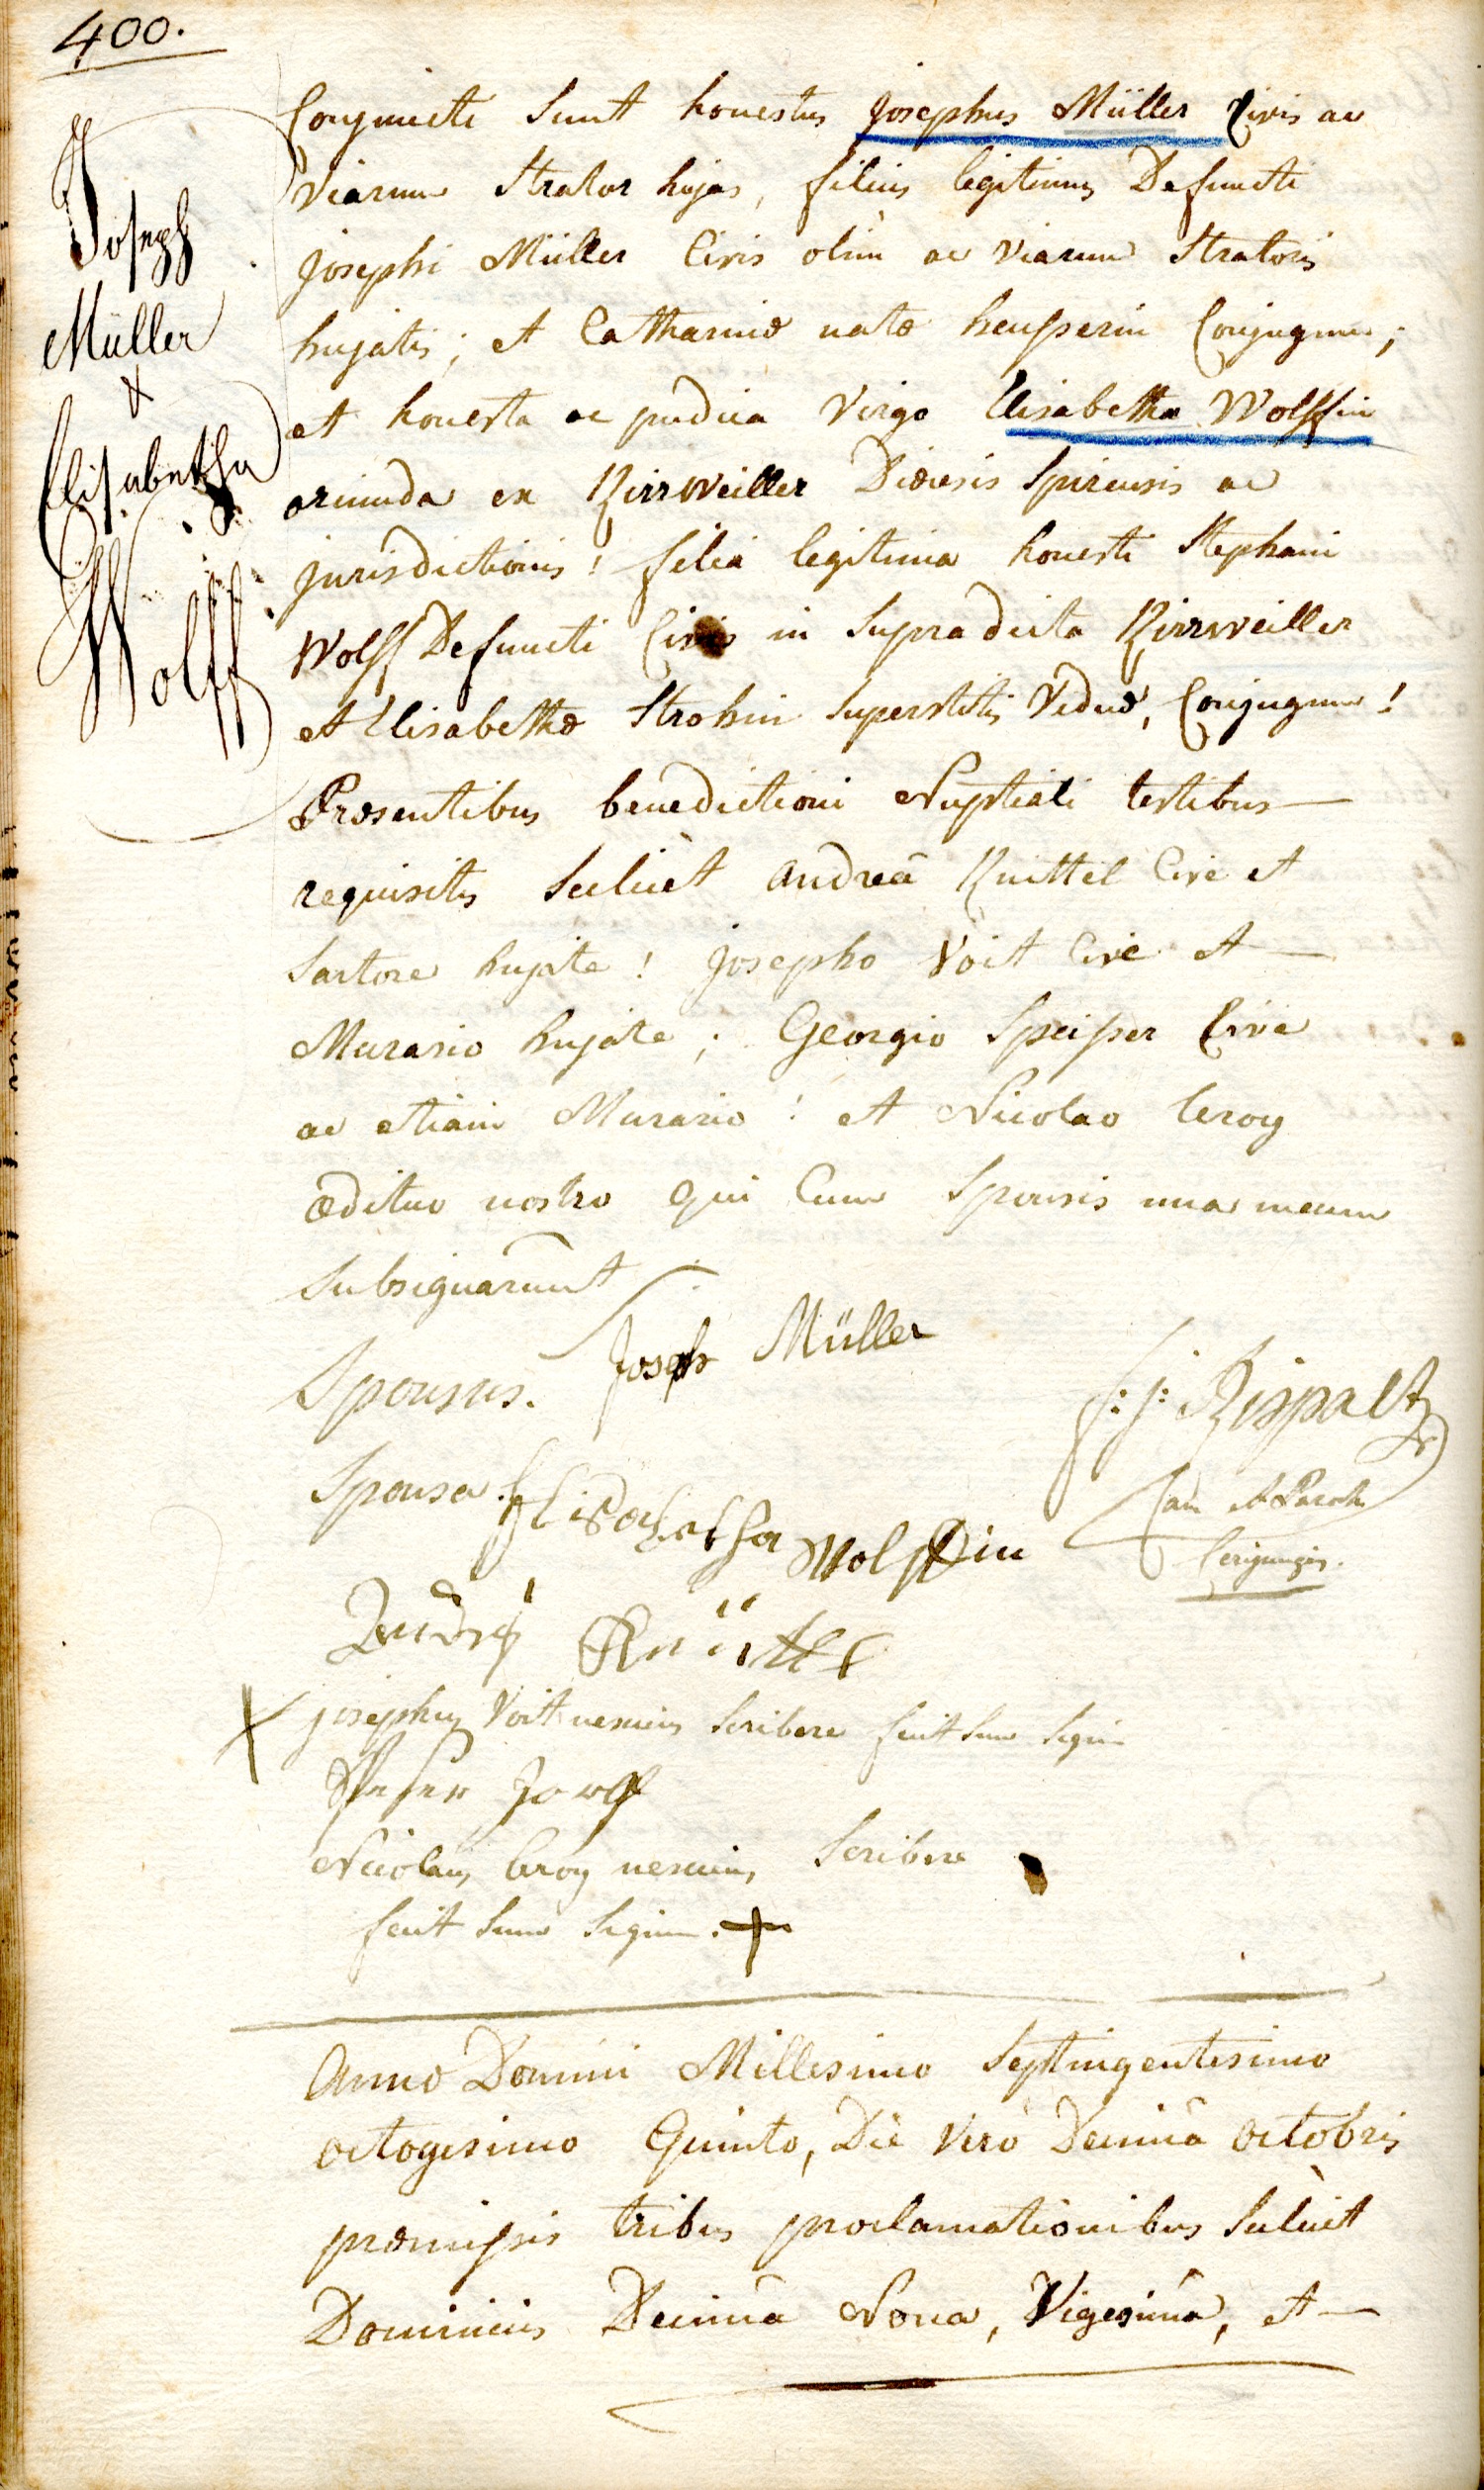 400.
Joseph
Müller
&
Elisabetha
Wolff
Conjuncti Sunt honestus Josephus Müller Civis ac
Viarum Strator hujas, filius legitimus Defuncti
Josephi Müller Civis olim ac Viarum Stratoris
hujatis; et Catharinæ natæ heusserin Conjugum;
et honesta ac pudica Virgo Elisabetha Wolffin
oriunda ex Kirrweiller Diœcesis Spirensis ac
jurisdictionis! filia legitima honesti Stephani
Wolff Defuncti Civis in Supra dicta Kirrweiller
et Elisabethæ Strohin Superstitis Viduæ, Conjugum!
Præsentibus benedictioni Nuptiali testibus
requisitis Scilicet andreâ Knittel Cive et
Sartore hujate! Josepho Voit Cive et
Murario hujate; Georgio Speisser Cive
ac etiam Murario! et Nicolao leroy
ædituo nostro qui Cum Sponsis una mecum
Subsignarunt
Sponsus. Joseph Müller
Sponsa. Elisabetha Wolffin
Can et Paroch
Andreß Knüttel
Josephus Voit nescius Scribere fecit Suum Signum
Nicolaus leroy nescius Scribere
fecit Suum Signum. +
Anno Domini Millesimo Septingentesimo
octogesimo Quinto, Die Vero Decimâ octobris
præmissis tribus proclamationibus Scilicet
Dominicis Decimâ Nona, Vigesimâ, et